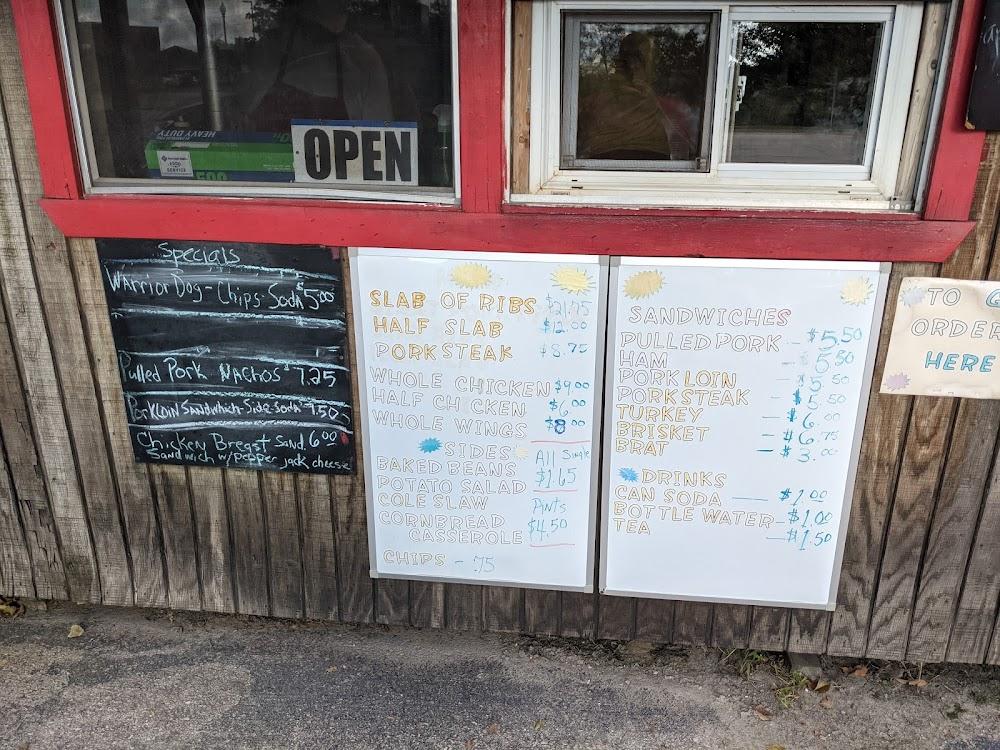 HEAVY DUTY
500
OPEN
Specials
Warrior Dog - Chips - Soda $5.00
Pulled Pork Nachos $7.25
Pork Loin Sandwich - Side - Soda 9.50
Chicken Breast Sand. 6.00
Sandwich w/ pepper jack cheese
SLAB OF RIBS $21.75
HALF SLAB $12.00
PORK STEAK $8.75
WHOLE CHICKEN $9.00
HALF CH CKEN $6.00
WHOLE WINGS $8.00
SIDES All Single
BAKED BEANS $1.65
POTATO SALAD
COLE SLAW Pints
CORNBREAD $4.50
CASSEROLE
CHIPS - .75
SANDWICHES
PULLED PORK - $5.50
HAM - 5.50
PORK LOIN - $5.50
PORK STEAK - $5.50
TURKEY - $6.00
BRISKET - $6.75
BRAT - $3.00
DRINKS
CAN SODA — $1.00
BOTTLE WATER - $1.00
TEA - $1.50
TO G
ORDER
HERE